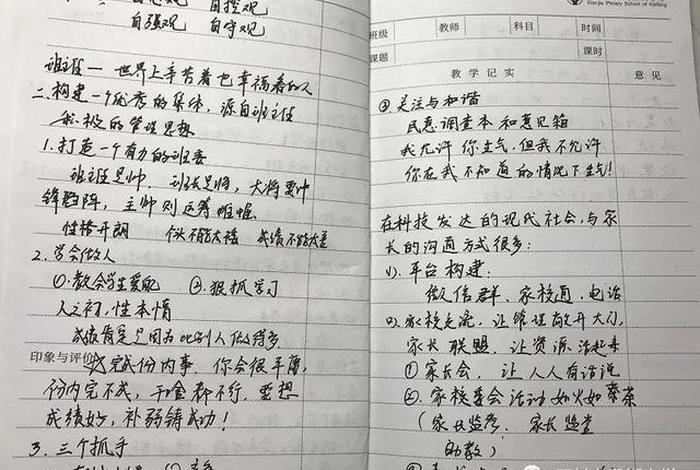 自强观 自守观
班主任— 世界上辛苦着也幸福着的人
二、构建一个优秀的集体, 源自班主任
积极的管理思想
1. 打造一个有力的班委
班主任是帅, 班长是将, 大将要冲
锋陷阵, 主帅则运筹帷幄
性格开朗 个头不能太矮 成绩不能太差
2. 学会做人
①. 教会学生 ②. 狠抓学习
人之初, 性本惰
成绩肯定是因为比别人做得多
印象与评价
完成份内事, 你会很平庸,
份内完不成, 干啥都不行, 要想
成绩好, 补弱铸成功!
3. 三个抓手
Xianjie Primary School of Kaifeng
班级 教师 科目 时间
课题 课时
教学记实 意见
③ 关注与和谐
民意调查本 和意见箱
我允许 你生气, 但我不允许
你在我不知道的情况下生气!
在科技发达的现代社会, 与家
长的沟通方式很多:
1). 平台构建:
微信群、家校通、电话
2). 家校交流, 让管理敞开大门,
家长联盟, 让资源活起来
① 家长会, 让人人有话说
②. 家校委会活动如火如荼
(家长监考, 家长监堂
助教)